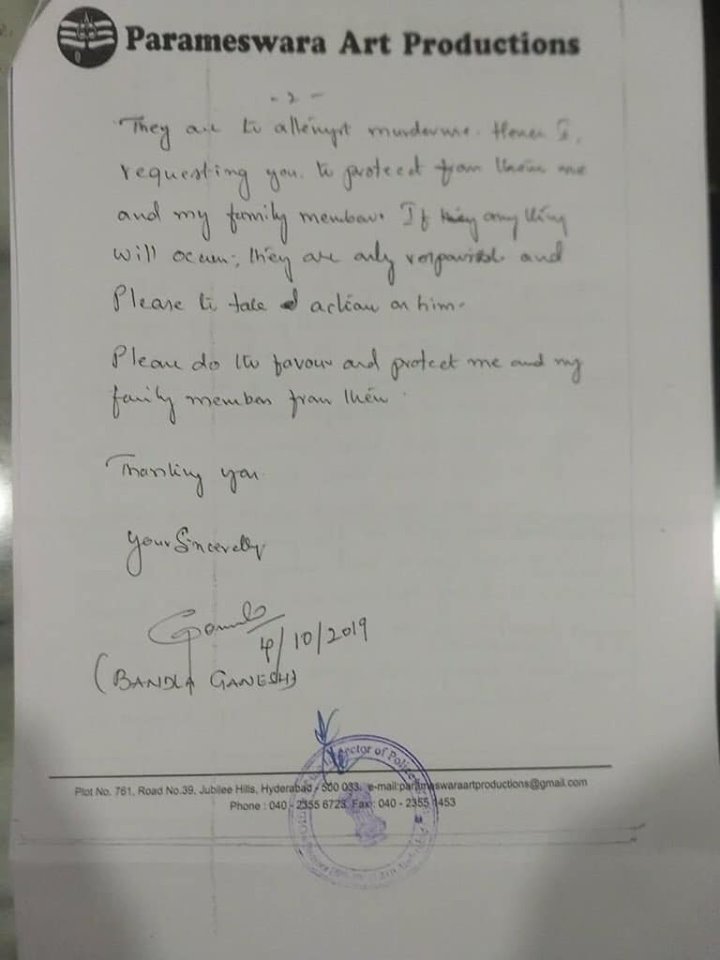 Parameswara Art Productions
- 2 -
They are to attempt murder me. Hence I,
requesting you. to protect from them me
and my family members If any thing
will occur; they are only responsible and
Please to take action on him.
Please do the favour and protect me and my
family members from them.
Thanking you
Your Sincerely
4/10/2019
(BANDLA GANESH)
ector of Police
Plot No. 761, Road No.39, Jubilee Hills, Hyderabad - 500 033. e-mail:parameswaraartproductions@gmail.com
Phone : 040 - 2355 6723, Fax : 040 - 2355 1453